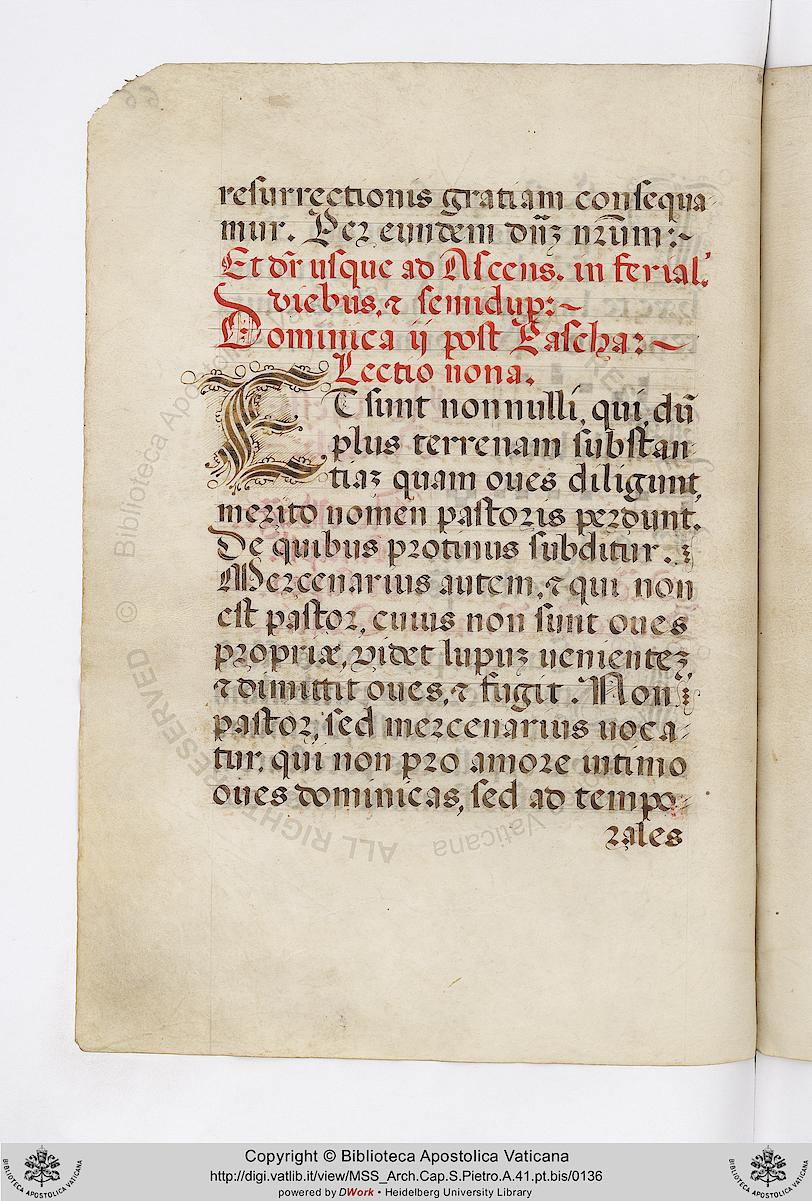 resurrectionis gratiam consequa-
mur. Per eundem dñꝫ nrũm:~
Et dr̃ usque ad Ascens. in ferial.'
diebus, ⁊ semidup:~
Dominica ij post Pascha:~
Lectio nona.
ET sunt nonnulli, qui, dũ
plus terrenam substan
tiaꝫ quam oues diligunt,
merito nomen pastoris perdunt.
De quibus protinus subditur.
Mercenarius autem, ⁊ qui non
est pastor, cuius non sunt oues
propriæ, videt lupuꝫ uenienteꝫ,
⁊ dimittit oues, ⁊ fugit. Non
pastor, sed mercenarius uoca-
tur, qui non pro amore intimo
oues dominicas, sed ad tempo-
rales
Biblioteca Apostolica Vaticana
© ALL RIGHTS RESERVED
BIBLIOTECA APOSTOLICA VATICANA
Copyright © Biblioteca Apostolica Vaticana
http://digi.vatlib.it/view/MSS_Arch.Cap.S.Pietro.A.41.pt.bis/0136
powered by DWork • Heidelberg University Library
BIBLIOTECA APOSTOLICA VATICANA